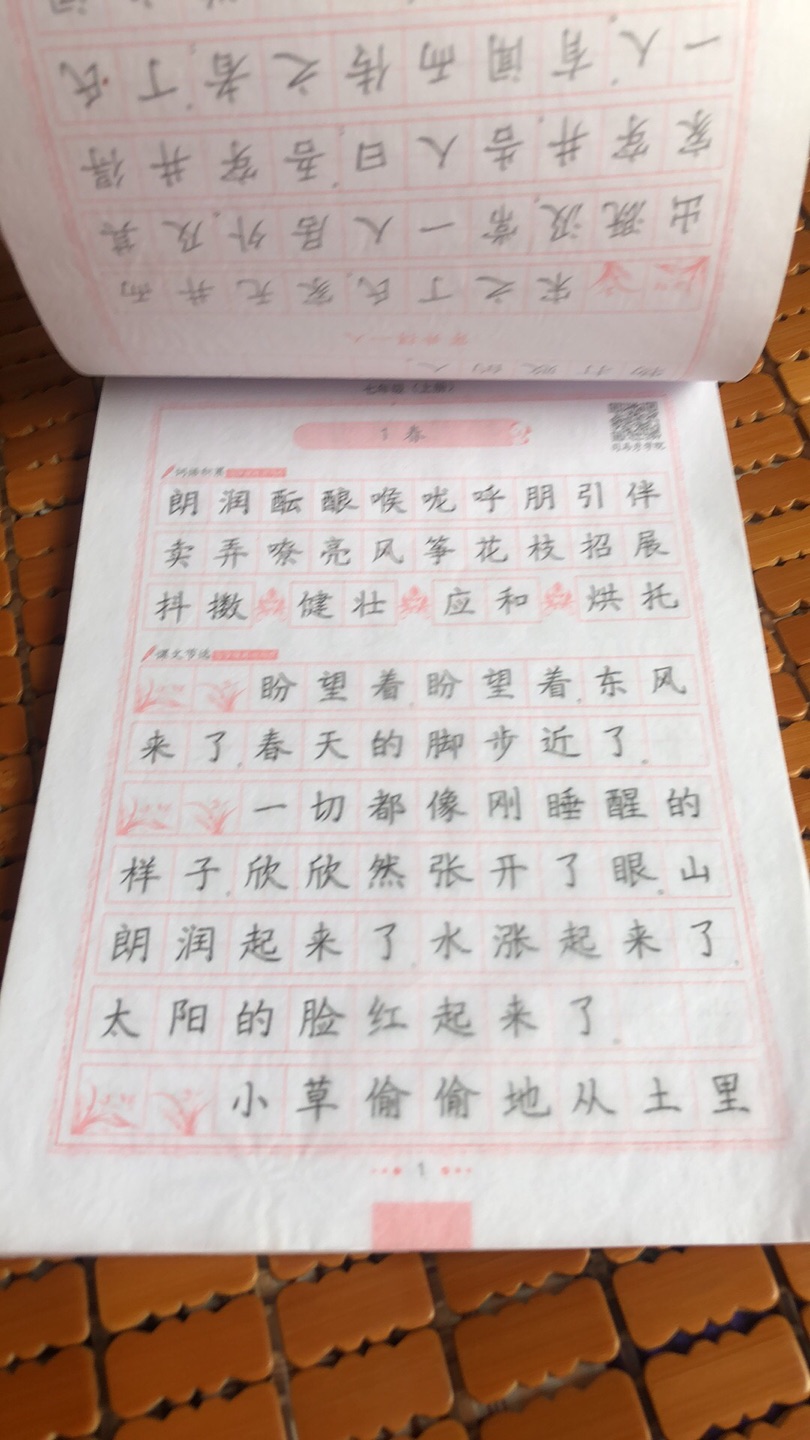 七年级（上册）
1 春
司马彦学院
词语积累
朗润酝酿喉咙呼朋引伴
卖弄嘹亮风筝花枝招展
抖擞 健壮 应和 烘托
课文节选
盼望着,盼望着,东风
来了,春天的脚步近了。
一切都像刚睡醒的
样子,欣欣然张开了眼。山
朗润起来了,水涨起来了,
太阳的脸红起来了。
小草偷偷地从土里
1
穿井得一人
宋之丁氏,家无井而
出溉汲,常一人居外。及其
家穿井,告人曰:“吾穿井得
一人。”有闻而传之者:“丁氏